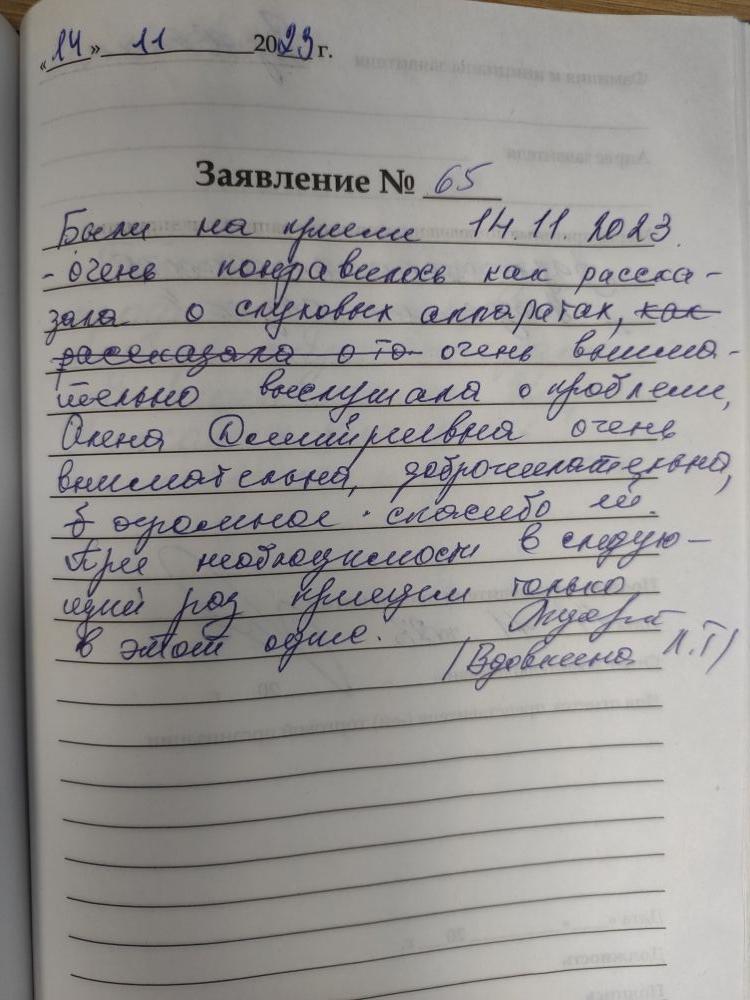 «14» 11 2023 г.
Заявление № 65
Были на приеме 14.11.2023.
- очень понравилось как расска-
зала о слуховых аппаратах, как
рассказала о то очень внима-
тельно выслушала о проблеме,
Олена Дмитриевна очень
внимательна, доброжелательна,
огромное спасибо ей.
При необходимости в следую-
щий раз придем только
в этот офис.
(Вдовкина Л.Т)